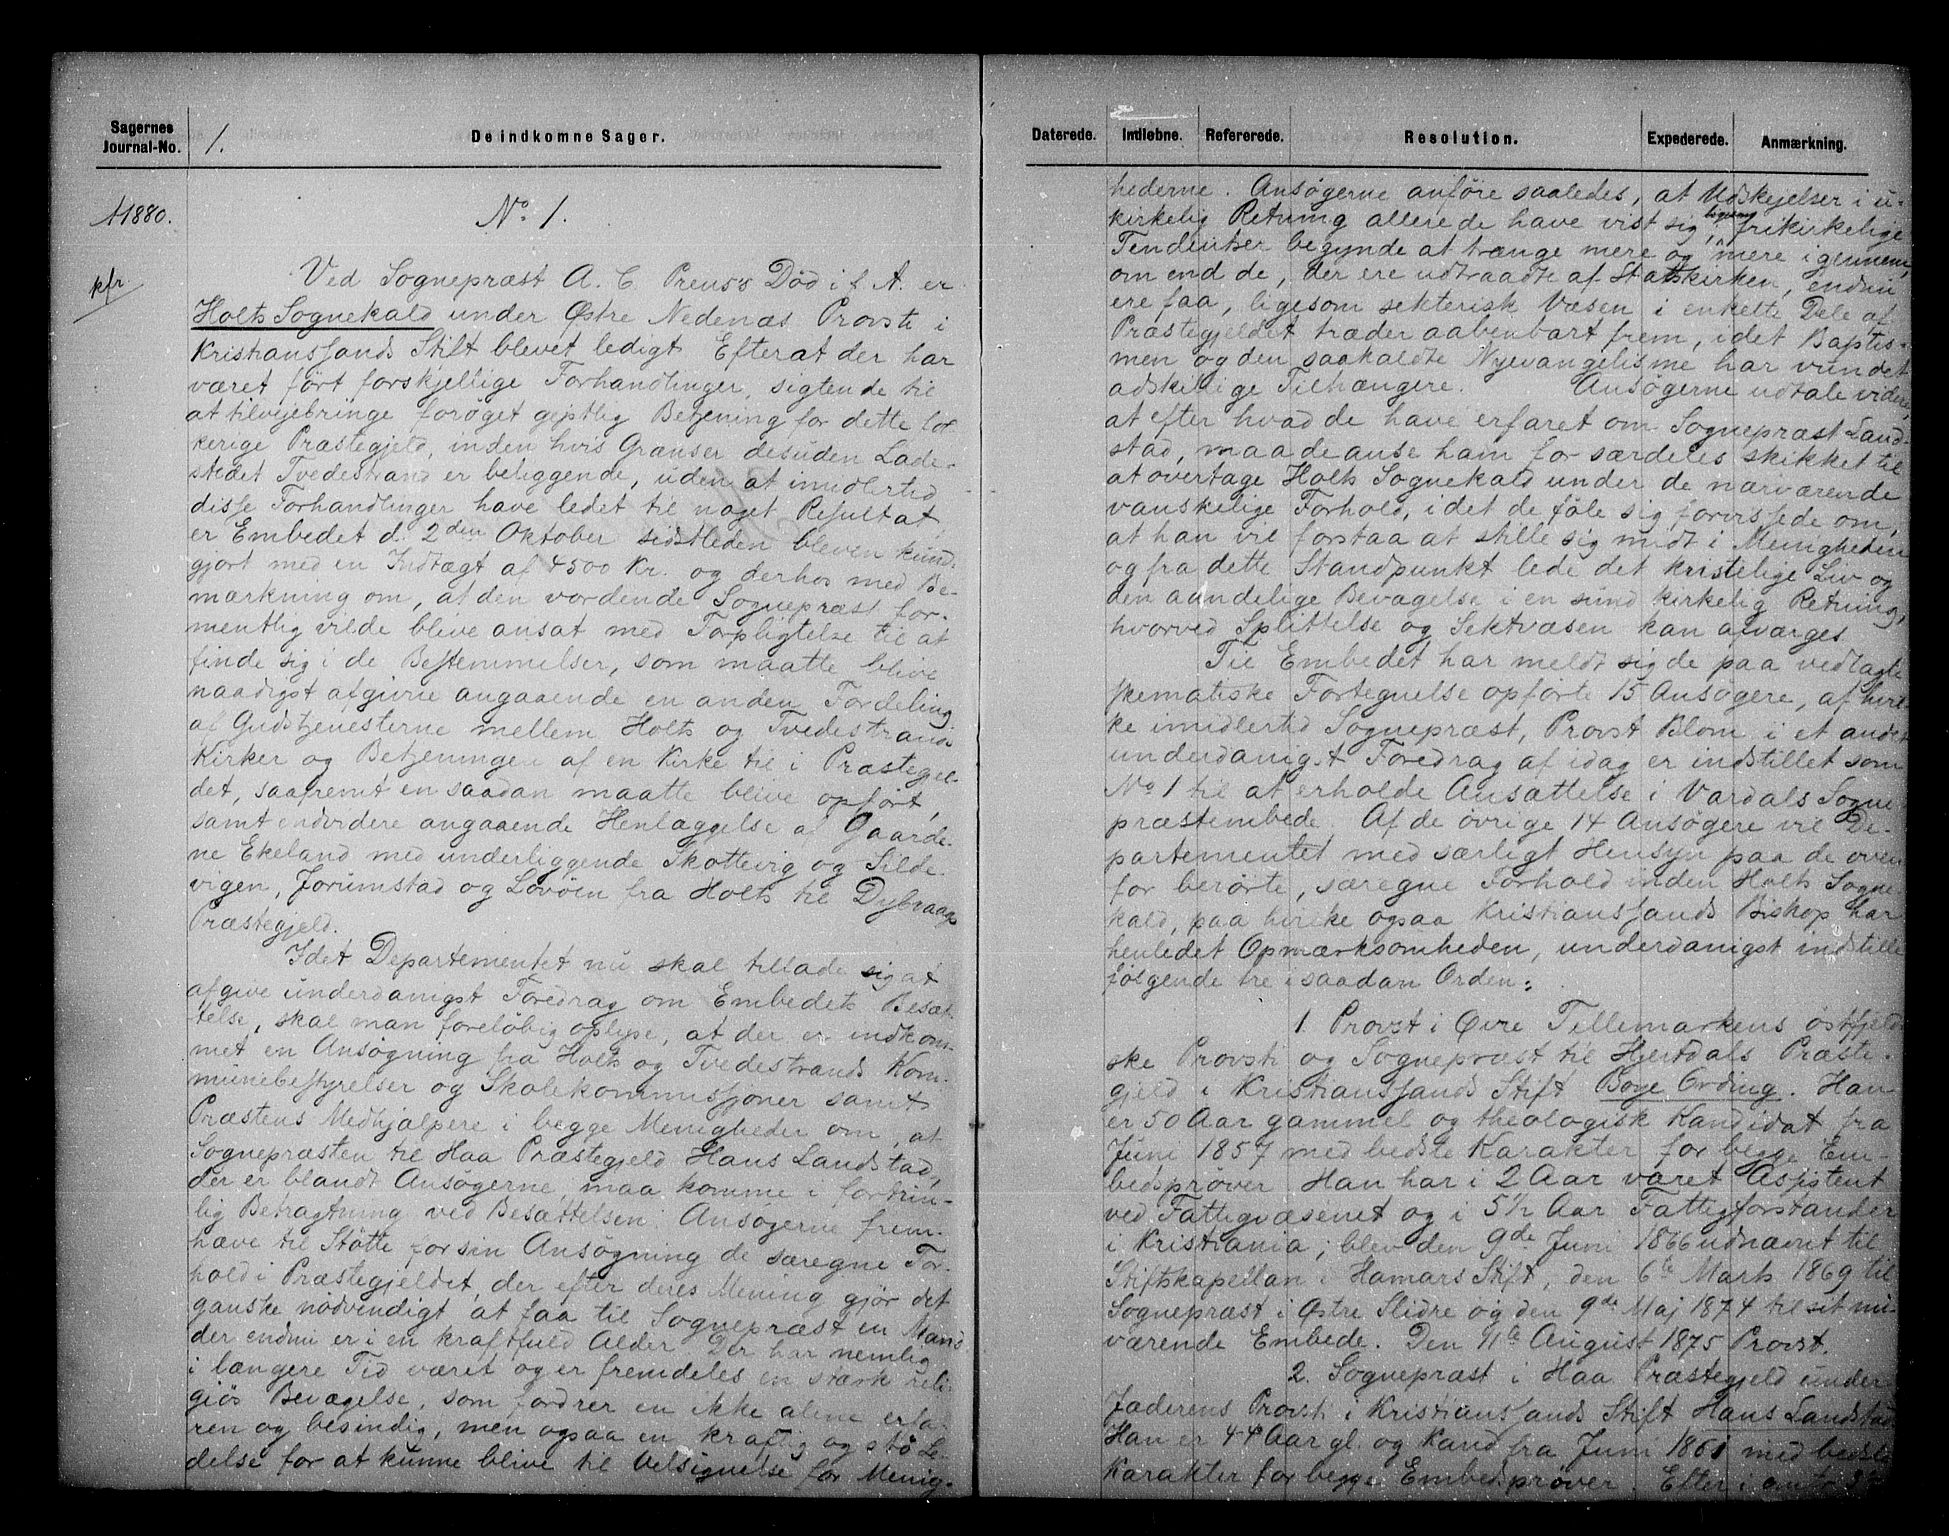 Sagernes
Journal-No.
1.
De indkomne Sager.
1880.
kfr.
No. 1.
Ved Sognepræst A. C. Preuss Død i f. A. er
Holts Sognekald under Østre Nedenæs Provsti i
Kristianssands Stift blevet ledigt. Efterat der har
været ført forskjellige Forhandlinger, sigtende til
at tilvejebringe forøget gejstlig Betjening for dette
kerige Præstegjeld, inden hvis Grænser desuden Lade-
stedet Tvedestrand er beliggende, uden at imidlertid
disse Forhandlinger have ledet til noget Resultat,
er Embedet d. 2den Oktober sidstleden bleven kund-
gjort med en Indtægt af 4500 Kr. og derhos med Be-
mærkning om, at den vordende Sognepræst for-
mentlig vilde blive ansat med Forpligtelse til at
finde sig i de Bestemmelser, som maatte blive
naadigst afgivne angaaende en anden Fordeling
af Gudstjenesterne mellem Holts og Tvedestrands
Kirker og Betjeningen af en Kirke til i Præstegjel-
det, saafremt en saadan maatte blive opført,
samt endvidere angaaende Henlæggelse af Gaarde-
ne Ekeland med underliggende Skottevig og Silde-
vigen, Jorumstad og Lovøen fra Holts til Dybvaags
Præstegjeld.
Idet Departementet nu skal tillade sig at
afgive underdanigst Foredrag om Embedets Besæt-
telse, skal man foreløbig oplyse, at der er indkom-
met en Ansøgning fra Holts og Tvedestrands Kom-
munebestyrelser og Skolekommissjoner samt
Præstens Medhjælpere i begge Menigheder om, at
Sognepræsten til Haa Præstegjeld Hans Landstad,
der er blandt Ansøgerne, maa komme i fortrin-
lig Betragtning ved Besættelsen. Ansøgerne frem-
hæve til Støtte for sin Ansøgning de særegne For-
hold i Præstegjeldet, der efter deres Mening gjør det
ganske nødvendigt at faa til Sognepræst en Mand
der endnu er i en kraftfuld Alder. Der har nemlig
i længere Tid været og er fremdeles en stærk reli-
giøs Bevægelse, som fordrer en ikke alene erfa-
ren og besindig, men ogsaa en kraftig og stø Le-
delse for at kunne blive til Velsignelse for Menig-
Daterede.
Indløbne.
Refererede.
Resolution.
Expederede.
Anmærkning.
hederne. Ansøgerne anføre saaledes, at Udskejelser i u-
kirkelig Retning allerede have vist sig, ligesom frikirkelige
Tendentser begynde at trænge mere og mere igennem,
om end de, der ere udtraadte af Statskirken, endnu
ere faa, ligesom sekterisk Væsen i enkelte Dele af
Præstegjeldet træder aabenbart frem, idet Baptis-
men og den saakaldte Nyevangelisme har vundet
adskillige Tilhængere. Ansøgerne udtale videre,
at efter hvad de have erfaret om Sognepræst Land-
stad, maa de anse ham for særdeles skikket til
at overtage Holts Sognekald under de nærværende
vanskelige Forhold, idet de føle sig forvissede om,
at han vil forstaa at stille sig midt i Menigheden
og fra dette Standpunkt lede det kristelige Liv og
den aandelige Bevægelse i en sund kirkelig Retning,
hvorved Splittelse og Sektvæsen kan afværges
Til Embedet har meldt sig de paa vedlagte
skematiske Fortegnelse opførte 15 Ansøgere, af hvil-
ke imidlertid Sognepræst, Provst Blom i et andet
underdanigst Foredrag af idag er indstillet som
No 1 til at erholde Ansættelse i Vardals Sogne-
præstembede. Af de øvrige 14 Ansøgere vil De-
partementet med særligt Hensyn paa de oven
for berørte, særegne Forhold inden Holts Sogne-
kald, paa hvilke ogsaa Kristianssands Biskop har
henledet Opmærksomheden, underdanigst indstille
følgende tre i saadan Orden:
1. Provst i Øvre Tellemarkens østfjeld-
ske Provsti og Sognepræst til Hjertdals Præste-
gjeld i Kristianssands Stift Boye Ording. Han
er 50 Aar gammel og theologisk Kandidat fra
Juni 1857 med bedste Karakter for begge Em-
bedsprøver. Han har i 2 Aar været Assistent
ved Fattigvæsenet og i 5 1/2 Aar Fattigforstander
i Kristiania; blev den 9de Juni 1866 udnævnt til
Stiftskapellan i Hamars Stift, den 6te Marts 1869 til
Sognepræst i Østre Slidre og den 9de Maj 1874 til sit nu-
værende Embede. Den 11te August 1875 Provst.
2. Sognepræst i Haa Præstegjeld under
Jæderens Provsti i Kristianssands Stift Hans Landstad
Han er 44 Aar gl. og Kand. fra Juni 1861 med bedste
Karakter for begge Embedsprøver. Efter i omtr. 3